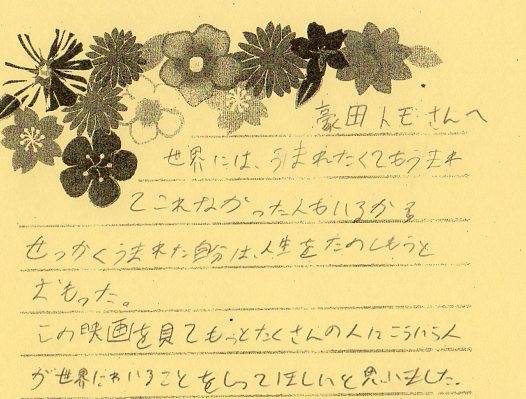 豪田トモさんへ
世界には、うまれたくてもうまれ
てこれなかった人もいるから
せっかくうまれた自分は、人生をたのしもうと
おもった。
この映画を見てもっとたくさんの人にこういう人
が世界にわいることをしってほしいと思いました。